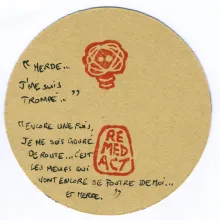 " MERDE...
J'ME SUIS
TROMPE... "
" ENCORE UNE FOIS,
JE ME SUIS GOURÉ
DE ROUTE... C'EST
LES MEUFS QUI
VONT ENCORE SE FOUTRE DE MOI...
ET MERDE. "
RE
MED
ACT